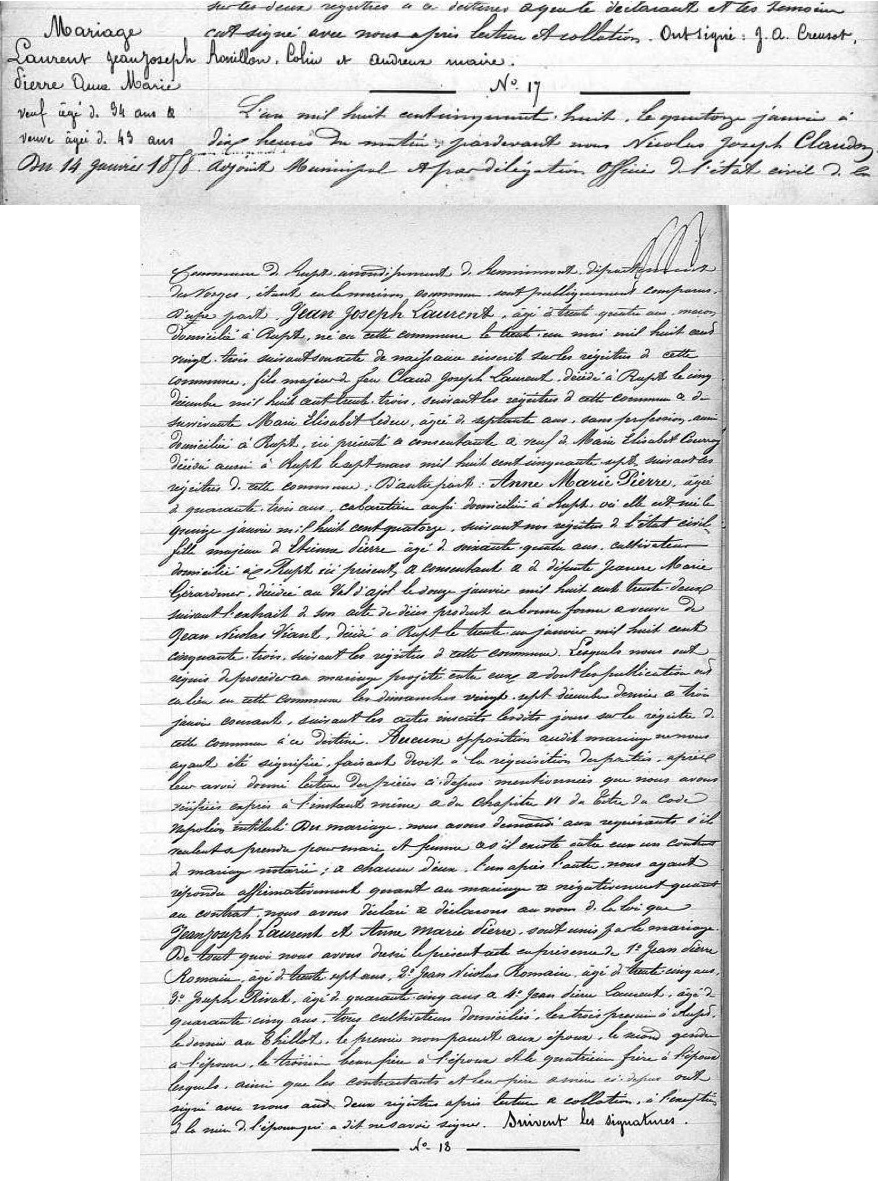 sur les deux registres à ce destinés ayant le déclarant et les témoins
Mariage
Laurent Jean Joseph
Pierre Anne Marie
veuf âgé de 34 ans &
veuve âgée de 43 ans
Du 14 janvier 1858.
ont signé avec nous après lecture et collation. Ont signé : J. A. Creusot,
Colin et Andreux maire.
N° 17
L'an mil huit cent cinquante-huit, le quatorze janvier à
dix heures du matin pardevant nous Nicolas Joseph Claudon,
adjoint Municipal et par délégation Officier de l'état civil de la
Commune de Rupt arrondissement de Remiremont, département
des Vosges, étant en la maison commune sont publiquement comparus,
D'une part Jean Joseph Laurent, âgé de trente quatre ans, maçon
domicilié à Rupt, né en cette commune le trente-un mai mil huit cent
vingt-trois suivant son acte de naissance inscrit sur les régistres de cette
commune, fils majeur de feu Claud Joseph Laurent, décédé à Rupt le cinq
décembre mil huit cent trente-trois, suivant les régistres de cette commune & de
survivante Marie Elisabet Leduc, âgée de septante ans, sans profession, aussi
domiciliée à Rupt, ici présente & consentante & veuf de Marie Elisabet Courroy
décédée aussi à Rupt le sept mars mil huit cent cinquante sept suivant les
régistres de cette commune ; D'autre part : Anne Marie Pierre, âgée
de quarante-trois ans, cabaretière aussi domiciliée à Rupt où elle est née le
quinze janvier mil huit cent quatorze, suivant nos régistres de l'état civil,
fille majeure de Etienne Pierre âgé de soixante quatre ans, cultivateur
domicilié à Rupt ici présent, & consentant & de défunte Jeanne Marie
Gérardmer, décédée au Val d'ajol le douze janvier mil huit cent trente-deux
suivant l'extrait de son acte de décès produit en bonne forme & veuve de
Jean Nicolas Viant, décédé à Rupt le trente-un janvier mil huit cent
cinquante-trois, suivant les régistres de cette commune. Lesquels nous ont
requis de procéder au mariage projeté entre eux & dont les publications ont
eu lieu en cette commune les dimanches vingt-sept décembre dernier & trois
janvier courant, suivant les actes inscrits lesdits jours sur le régistre de
cette commune à ce destiné. Aucune opposition audit mariage ne nous
ayant été signifiée, faisant droit à la réquisition des parties, après
leur avoir donné lecture des pièces ci-dessus mentionnées que nous avons
vérifiées exprès à l'instant même & du chapitre VI du titre du Code
Napoléon intitulé Du mariage, nous avons demandé aux requérants s'ils
veulent se prendre pour mari et femme & s'il existe entre eux un contrat
de mariage notarié ; & chacun d'eux, l'un après l'autre, nous ayant
répondu affirmativement quant au mariage & négativement quant
au contrat, nous avons déclaré & déclarons au nom de la loi que
Jean Joseph Laurent et Anne Marie Pierre, sont unis par le mariage.
De tout quoi nous avons dressé le présent acte en présence de 1° Jean Pierre
Romain, âgé de trente sept ans, 2° Jean Nicolas Romain, âgé de trente cinq ans,
3° Joseph Rival, âgé de quarante-cinq ans & 4° Jean Pierre Laurent, âgé de
quarante-cinq ans, tous cultivateurs domiciliés, les trois premiers à Rupt,
le dernier au Thillot, le premier non parent aux époux, le second gendre
à l'épouse, le troisième beau-frère à l'époux et le quatrième frère à l'époux
lesquels, ainsi que les contractants et leur père & mère ci-dessus ont
signé avec nous aux deux régistres après lecture & collation, à l'exception
de la mère de l'époux qui a dit ne savoir signer. Suivent les signatures.
N° 18